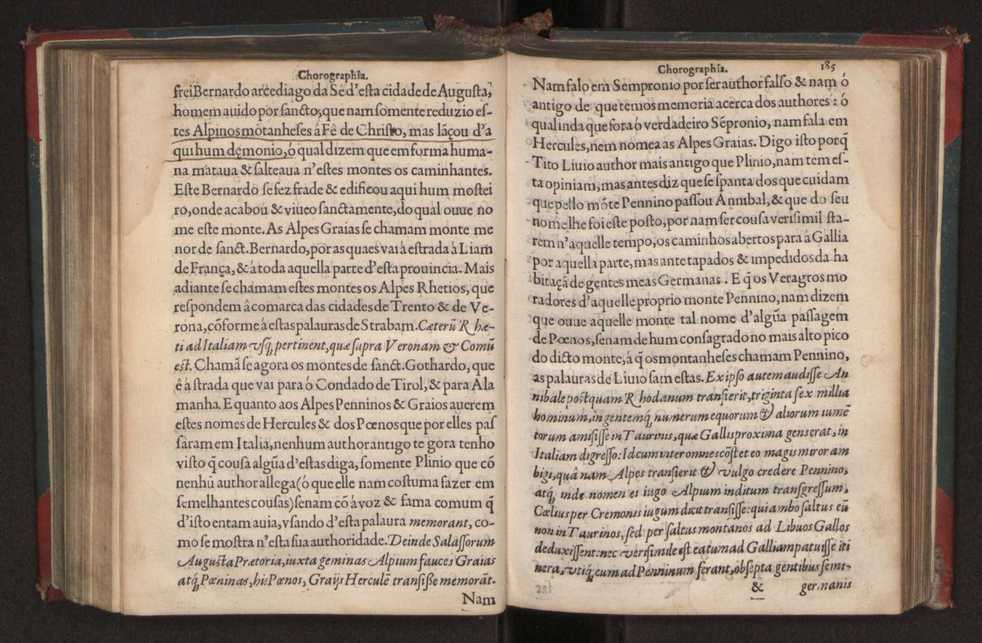 Chorographîa.
frei Bernardo arcediago da Sè d'esta cidade de Augusta,
homem auido por sancto; que nam sómente reduzio es-
tes Alpinos mõtanheses à Fè de Christo, mas lãçou d'a
qui hum demonio, ó qual dizem que em forma huma-
na mataua & salteaua n'estes montes os caminhantes.
Este Bernardo se fez frade & edificou aqui hum mostei
ro, onde acabou & viueo sanctamente, do qual ouue no
me este monte. As Alpes Graias se chamam monte me
nor de sanct. Bernardo, por as quaes vai à estrada à Liam
de França, & á toda aquella parte d'esta prouincia. Mais
adiante se chamam estes montes os Alpes Rhetios, que
respondem à comarca das cidades de Trento & de Ve-
rona, cõforme à estas palauras de Strabam. Cæterũ Rhæ-
ti ad Italiam vsq̃, pertinent, quæ supra Veronam & Comũ
est. Chamã se agora os montes de sanct. Gothardo, que
ê à strada que vai para ò Condado de Tirol, & para Ala
manha. E quanto aos Alpes Penninos & Graios auerem
estes nomes de Hercules & dos Pœnos que por elles pas
saram em Italia, nenhum author antigo tegora tenho
visto q̃ cousa algũa d'estas diga, somente Plinio que cõ
nenhũ author allega (ó que elle nam costuma fazer em
semelhantes cousas) senam cõ à voz & fama comum q̃
d'isto entam auia, vsando d'esta palaura memorant, co-
mo se mostra n'esta sua authoridade. Deinde Salassorum
Augusta Prætoria, iuxta geminas Alpium fauces Graias
atq̃, Pœninas, his Pœnos, Graijs Herculẽ transisse memorãt.
Nam
Chorographîa.
185
Nam falo em Sempronio por ser author falso & nam ó
antigo de que temos memoria acerca dos authores: ó
qual inda que fora ó verdadeiro Sẽpronio, nam fala em
Hercules, nem nomea as Alpes Graias. Digo isto porq̃
Tito Liuio author mais antigo que Plinio, nam tem es-
ta opiniam, mas antes diz que se spanta dos que cuidam
que pello mõte Pennino passou Annibal, & que do seu
nome lhe foi este posto, por nam ser cousa verisimil sta-
rem n'aquelle tempo, os caminhos abertos para à Gallia
por aquella parte, mas ante tapados & impedidos da ha
bitaçã de gentes meas Germanas. E q̃ os Veragros mo
radores d'aquelle proprio monte Pennino, nam dizem
que ouue aquelle monte tal nome d'algũa passagem
de Pœnos, senam de hum consagrado no mais alto pico
do dicto monte, à q̃ os montanheses chamam Pennino,
as palauras de Liuio sam estas. Ex ipso autem audisse An
nibale postquam Rhodanum transierit, triginta sex millia
hominum, ingentemq̃, numerum equorum & aliorum iumẽ
torum amisisse in Taurinis, quæ Gallis proxima gens erat, in
Italiam digresso: Id cum inter omnes cõstet eo magis miror am
bigi, quã nam Alpes transierit & vulgo credere Pennino,
atq̃, inde nomen ei iugo Alpium inditum transgressum,
Cœlius per Cremonis iugum dicit transisse: qui ambo saltus eũ
non in Taurinos, sed per saltus montanos ad Libuos Gallos
deduxissent: nec verisimile est ea tum ad Galliam patuisse iti
nera, vtiq̃, cum ad Penninum ferant, obsepta gentibus semi-
& germanis